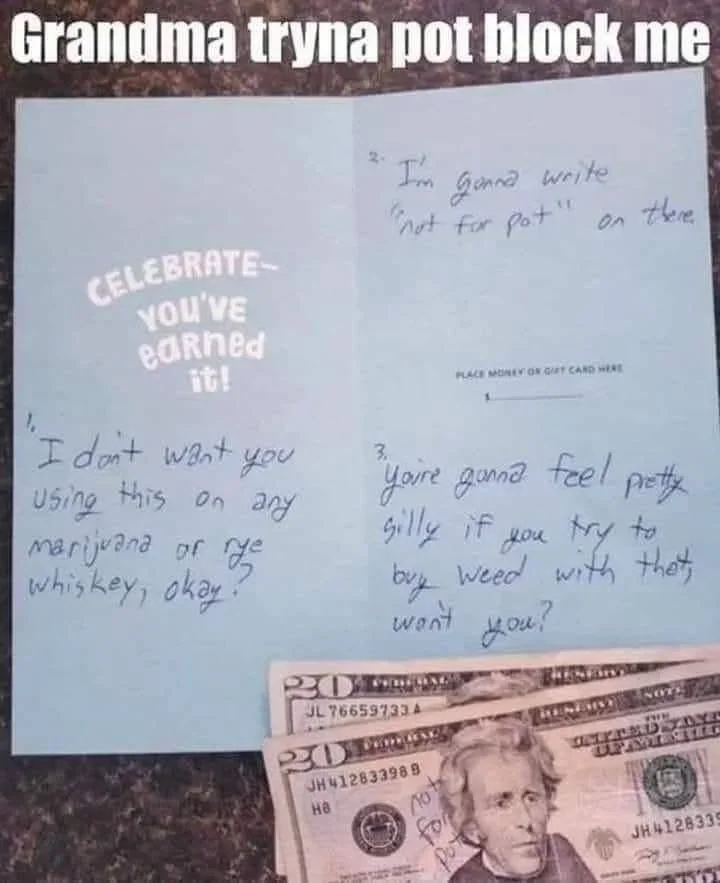 Grandma tryna pot block me
CELEBRATE-
YOU'VE
eaRned
it!
1.
"I don't want you
using this on any
marijuana or rye
whiskey, okay?
2.
I'm gonna write
"not for pot" on there.
PLACE MONEY OR GIFT CARD HERE
$
3.
"you're gonna feel pretty
silly if you try to
buy weed with that,
won't you?
20 FEDERAL RESERVE NOTE
JL 76659733 A
20 FEDERAL RESERVE
THE
UNITED STATES
OF AMERICA
JH 41283398 B
H8
not
for
pot
JH 4128339